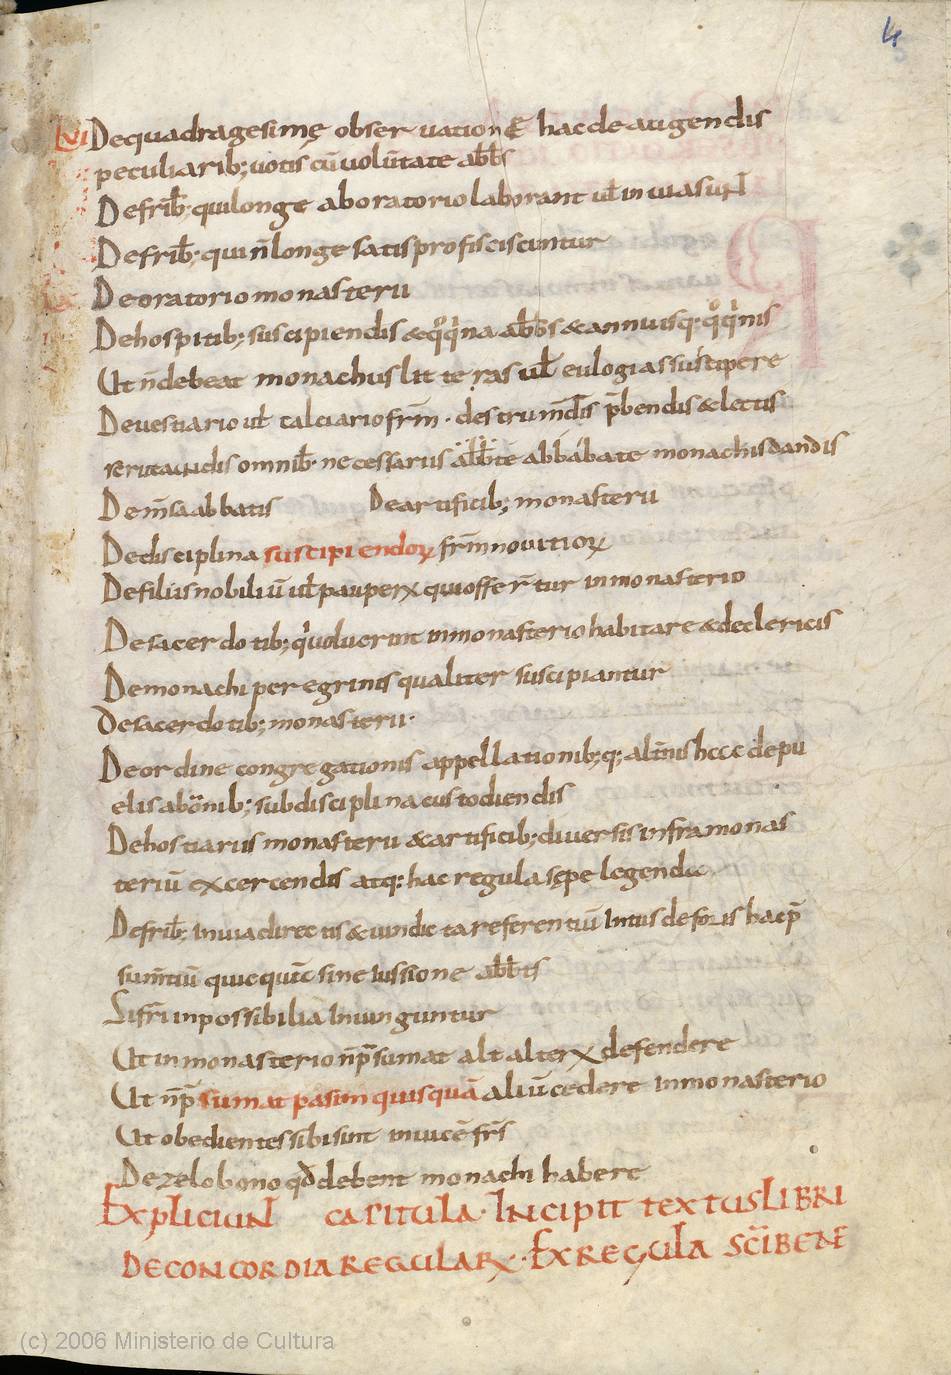 4
LVI Dequadragesimę obseruationE hacdeaugendis
peculiarib; uotis cū uolūtate abb̄s
Defrīb; qui longe aboratorio laborant ul̄ in uia suN̄
Defrīb; qui n̄ longe satis profisciscuntur
De oratorio monasterii
De hospitib; suscipiendis &
Ut n̄ debeat monachus litteras ul̄ eulogias suscipere
De uestiario ul̄ calciario frm̄ · p̄bendis & lectis
omnib· necessariis abbate monachis dandis
De mn̄sa abbatis De artificib; monasterii
De disciplina suscipiendoꝝ frm̄ nouitioꝝ
De filiis nobiliū ul̄ pauperꝝ qui offer̄tur in monasterio
De sacerdotib; q̄ uoluerint in monasterio habitare & de clericis
De monachi peregrinis qualiter suscipiantur
De sacerdotib; monasterii·
De ordine congregationis appellationib; q;
elis ab om̄ib; sub disciplina custodiendis
De hostiariis monasterii & artificib; diuersis infra monas
teriū excercendis atq; hac regula sępe legenda
De frīb; in uia directis & referentiū intus de foris hac p̄
quicquā sine iussione abb̄tis
Si fr̄i inpossibilia iniunguntur
Ut in monasterio n̄ p̄sumat alt alterꝝ defendere
Ut n̄ p̄sumat pasim quisquā aliū cedere in monasterio
Ut obedientes sibi sint inuicē fr̄s
De zelo bono qd̄ debent monachi habere
ExpliciuN̄ capitula· Incipit textus libri
De concordia regularꝝ· Ex regula sc̄i BeN̄
(c) 2006 Ministerio de Cultura